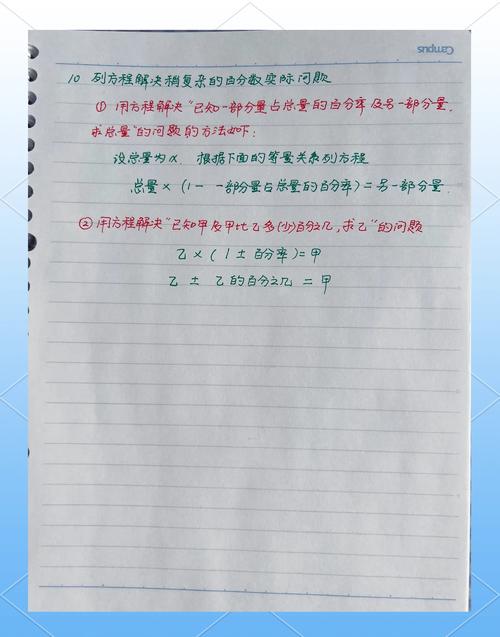 Campus
10 列方程解决稍复杂的百分数实际问题
① 用方程解决"已知一部分量占总量的百分率及另一部分量,
求总量"的问题的方法如下:
设总量为x, 根据下面的等量关系列方程
总量×(1-一部分量占总量的百分率)=另一部分量
② 用方程解决"已知甲及甲比乙多(少)百分之几,求乙"的问题
乙×(1±百分率)=甲
乙 ± 乙的百分之几 = 甲